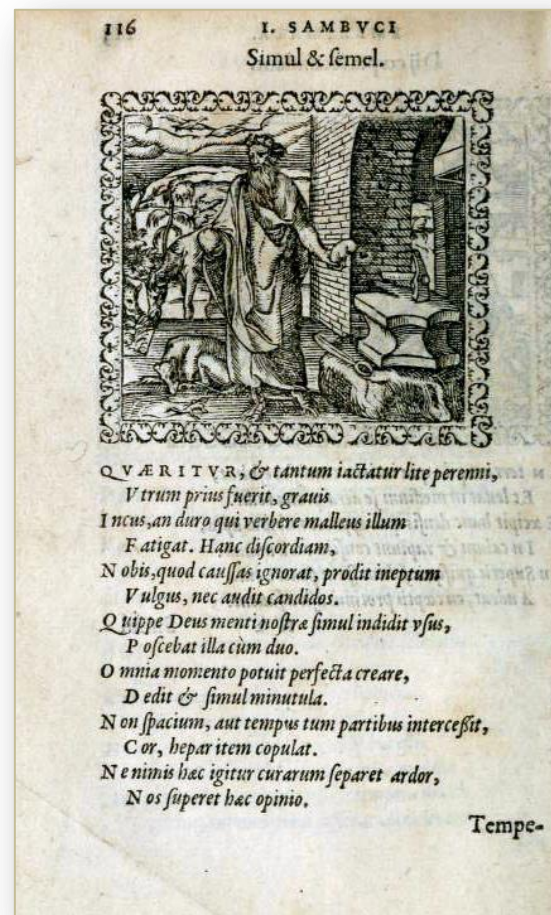 116 I. SAMBVCI
Simul & ſemel.
QVÆRITVR, & tantum iactatur lite perenni,
Vtrum prius fuerit, grauis
Incus, an duro qui verbere malleus illum
Fatigat. Hanc diſcordiam,
Nobis, quod cauſſas ignorat, prodit ineptum
Vulgus, nec audit candidos.
Quippe Deus menti noſtræ ſimul indidit vſus,
Poſcebat illa cùm duo.
Omnia momento potuit perfecta creare,
Dedit & ſimul minutula.
Non ſpacium, aut tempus tum partibus interceßit,
Cor, hepar item copulat.
Ne nimis hæc igitur curarum ſeparet ardor,
Nos ſuperet hæc opinio.
Tempe-